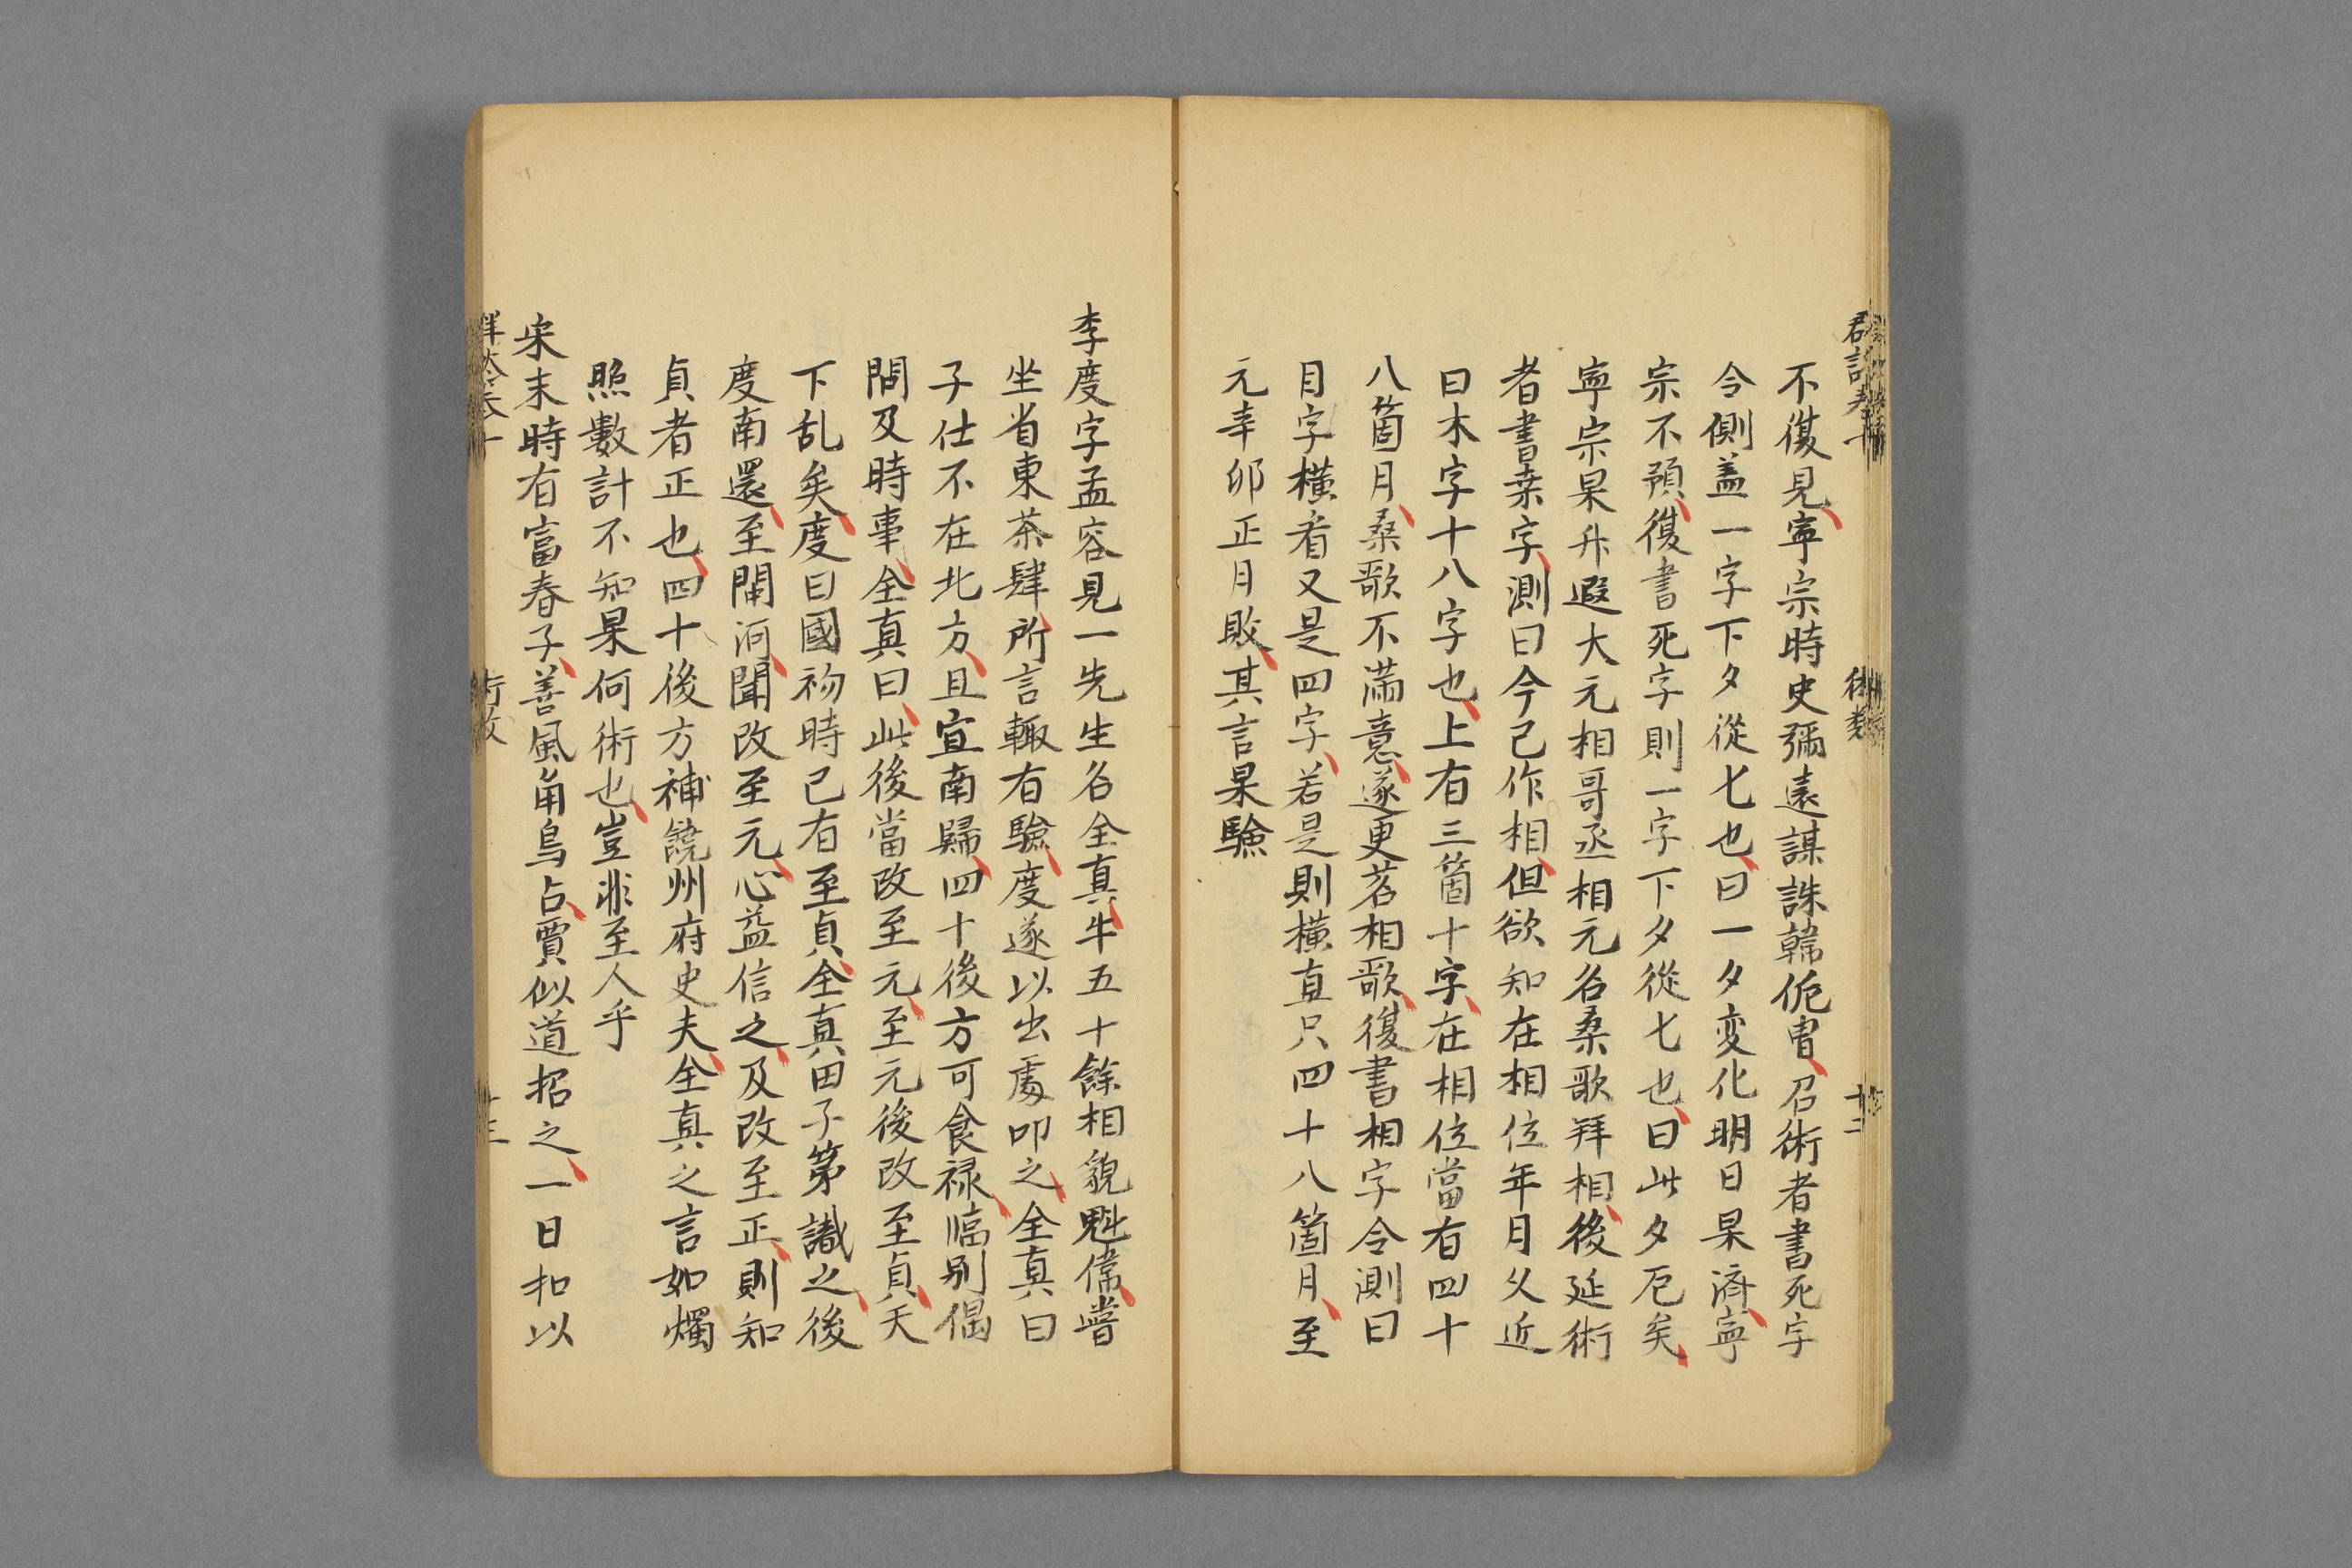 不復見寧宗時史彌遠謀誅韓侂冑召術者書死字
令側盖一字下夕從七也曰一夕変化明日果済寧
宗不預復書死字則一字下夕從七也曰此夕厄矣
寧宗果升遐大元相哥丞相元名桑歌拜相後延術
者書桒字測曰今已作相但欲知在相位年月久近
曰木字十八字也上有三箇十字在相位當有四十
八箇月桑歌不滿意遂更茗相歌復書相字令測曰
目字横看又是四字若是則横直只四十八箇月至
元辛卯正月敗其言果驗
李度字孟容見一先生名全真年五十餘相貌魁偉嘗
坐省東茶肆所言輙有驗度遂以出處叩之全真曰
子仕不在北方且宜南歸四十後方可食禄臨别偶
問及時事全真曰此後當改至元至元後改至貞天
下乱矣度曰國初時已有至貞全真田子第識之後
度南還至閘河聞改至元心益信之及改至正則知
貞者正也四十後方補饒州府史夫全真之言如燭
照數計不知果何術也豈非至人乎
宋末時有富春子善風角鳥占賈似道招之一日扣以